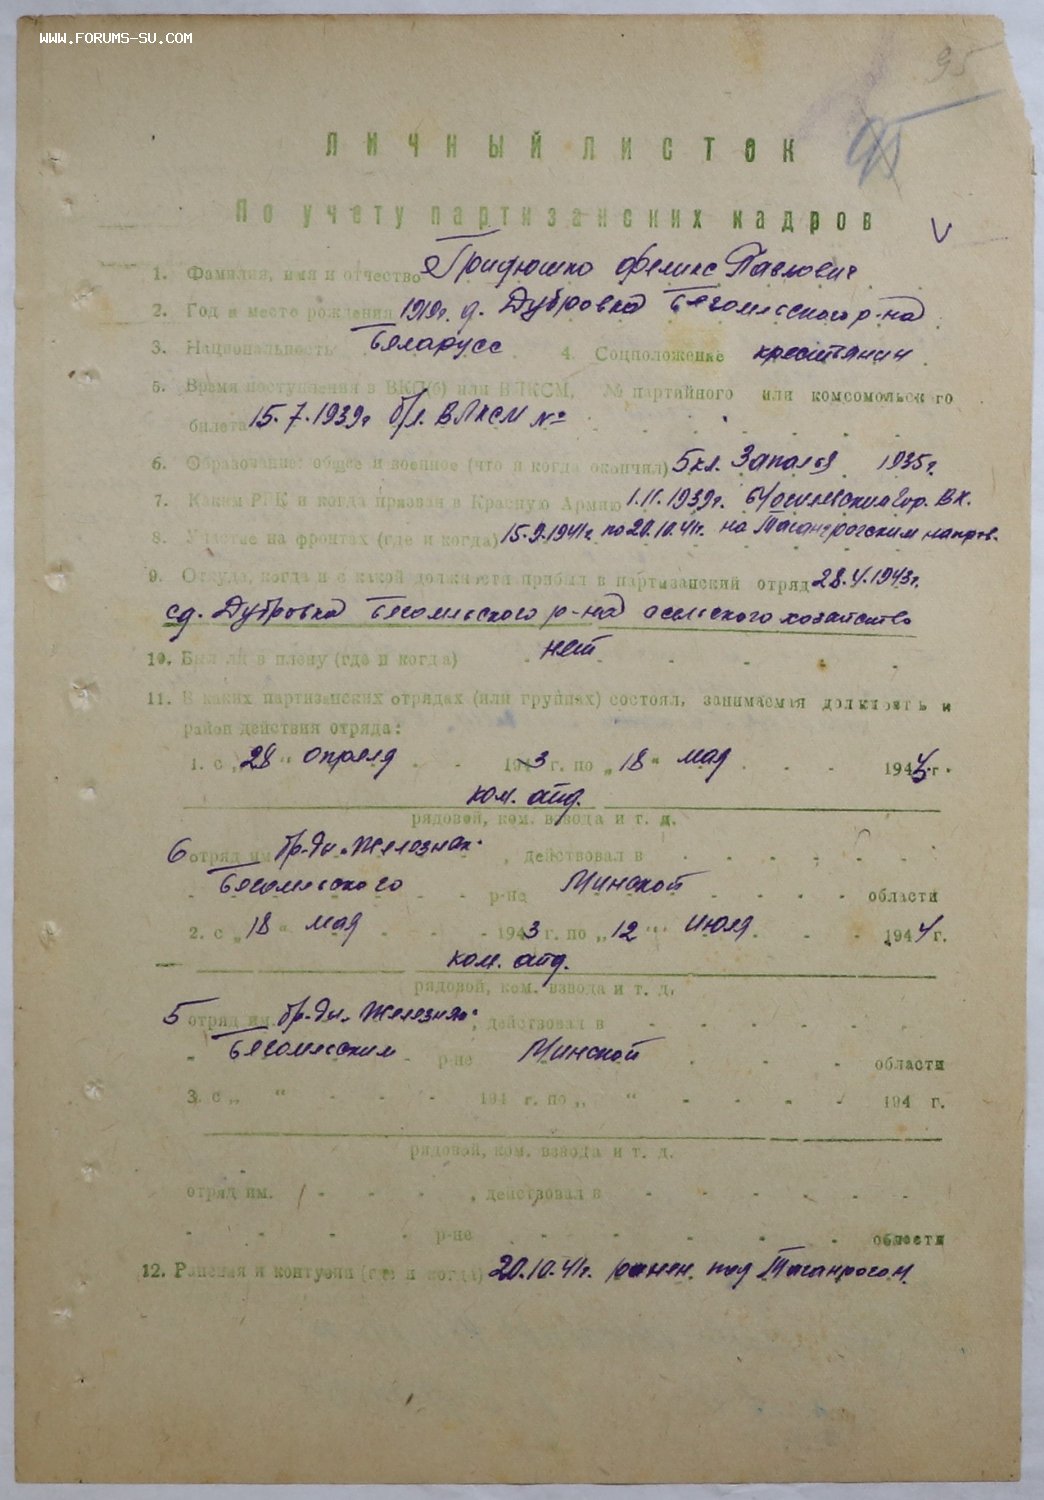 WWW.FORUMS-SU.COM
95
95
ЛИЧНЫЙ ЛИСТОК
По учету партизанских кадров
1. Фамилия, имя и отчество Феликс Павлович
2. Год и место рождения 1919г. д. Дубровка Бегомльского р-на
3. Национальность Беларусс 4. Соцположение крестьянин
5. Время поступления в ВКП(б) или ВЛКСМ, № партийного или комсомольского
билета 15.7.1939г б/л. ВЛКСМ №
6. Образование: общее и военное (что и когда окончил) 5 кл. 1935г.
7. Каким РВК и когда призван в Красную Армию 1.11.1939г. гор. ВК.
8. Участие на фронтах (где и когда) 15.9.1941г. по 20.10.41г. на Таганрогским напров.
9. Откуда, когда и с какой должности прибыл в партизанский отряд 28.4.1943г.
сд. Дубровка Бегомльского р-на сельского хозяйство
10. Был ли в плену (где и когда) нет
11. В каких партизанских отрядах (или группах) состоял, занимаемая должность и
район действия отряда:
1. с „28“ апреля 1943 г. по „18“ мая 1943 г.
ком. отд.
рядовой, ком. взвода и т. д.
6 отряд им. бр-ды „Железняк“, действовал в
Бегомльского р-не Минской области
2. с „18“ мая 1943 г. по „12“ июля 1944 г.
ком. отд.
рядовой, ком. взвода и т. д.
5 отряд им. бр-ды „Железняк“, действовал в
Бегомльским р-не Минской области
3. с „ “ 194 г. по „ “ 194 г.
рядовой, ком. взвода и т. д.
отряд им. , действовал в
р-не области
12. Ранения и контузии (где и когда) 20.10.41г. ранен под Таганрогом